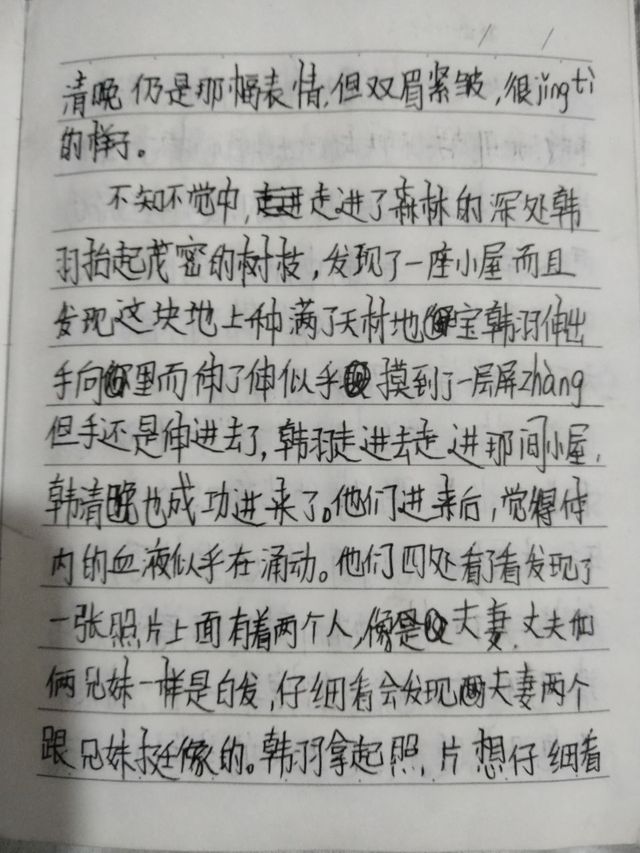 清晚仍是那幅表情,但双眉紧皱,很jingti
的样子。
不知不觉中,走进了森林的深处韩
羽抬起茂密的树枝,发现了一座小屋而且
发现这块地上种满了天材地宝韩羽伸出
手向里而伸了伸似乎摸到了一层屏zhàng
但手还是伸进去了,韩羽走进去走进那间小屋,
韩清晚也成功进来了。他们进来后,觉得体
内的血液似乎在涌动。他们四处看了看发现了
一张照片上面有着两个人,像是夫妻.丈夫和
俩兄妹一样是白发,仔细看会发现夫妻两个
跟兄妹挺像的。韩羽拿起照片想仔细看